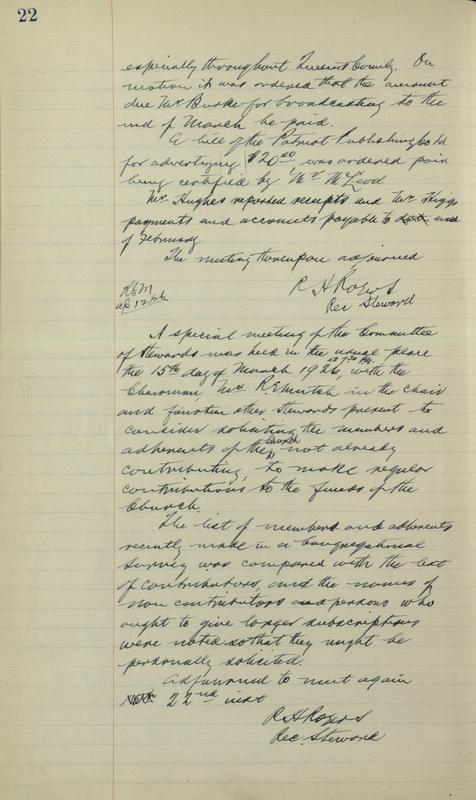 22
especially throughout Queens County. On
motion it was ordered that the amount
due Mr Burke for broadcasting to the
end of March be paid.
A bill of the Patriot Publishing Co Ltd
for advertizing $20.00 was ordered paid
being certified by Mr McLeod
Mr Hughes reported receipts and Mr Higgs
payments and accounts payable to end
of February
The meeting thereupon adjourned
R H Rogers
Rec Steward
REM
ap 12/26
A special meeting of the Committee
of Stewards was held in the usual place
at 7.30 P.M.
the 15th day of March 1926, with the
Chairman, Mr R E Mutch in the chair
and fourteen other Stewards present to
consider soliciting the members and
adherents of the church not already
contributing, to make regular
contributions to the funds of the
Church.
The list of members and adherents
recently made in a Congregational
Survey was compared with the list
of contributors, and the names of
non contributors and persons who
ought to give larger subscriptions
were noted so that they might be
personally solicited.
Adjourned to meet again
22nd inst
R H Rogers
Rec. Steward